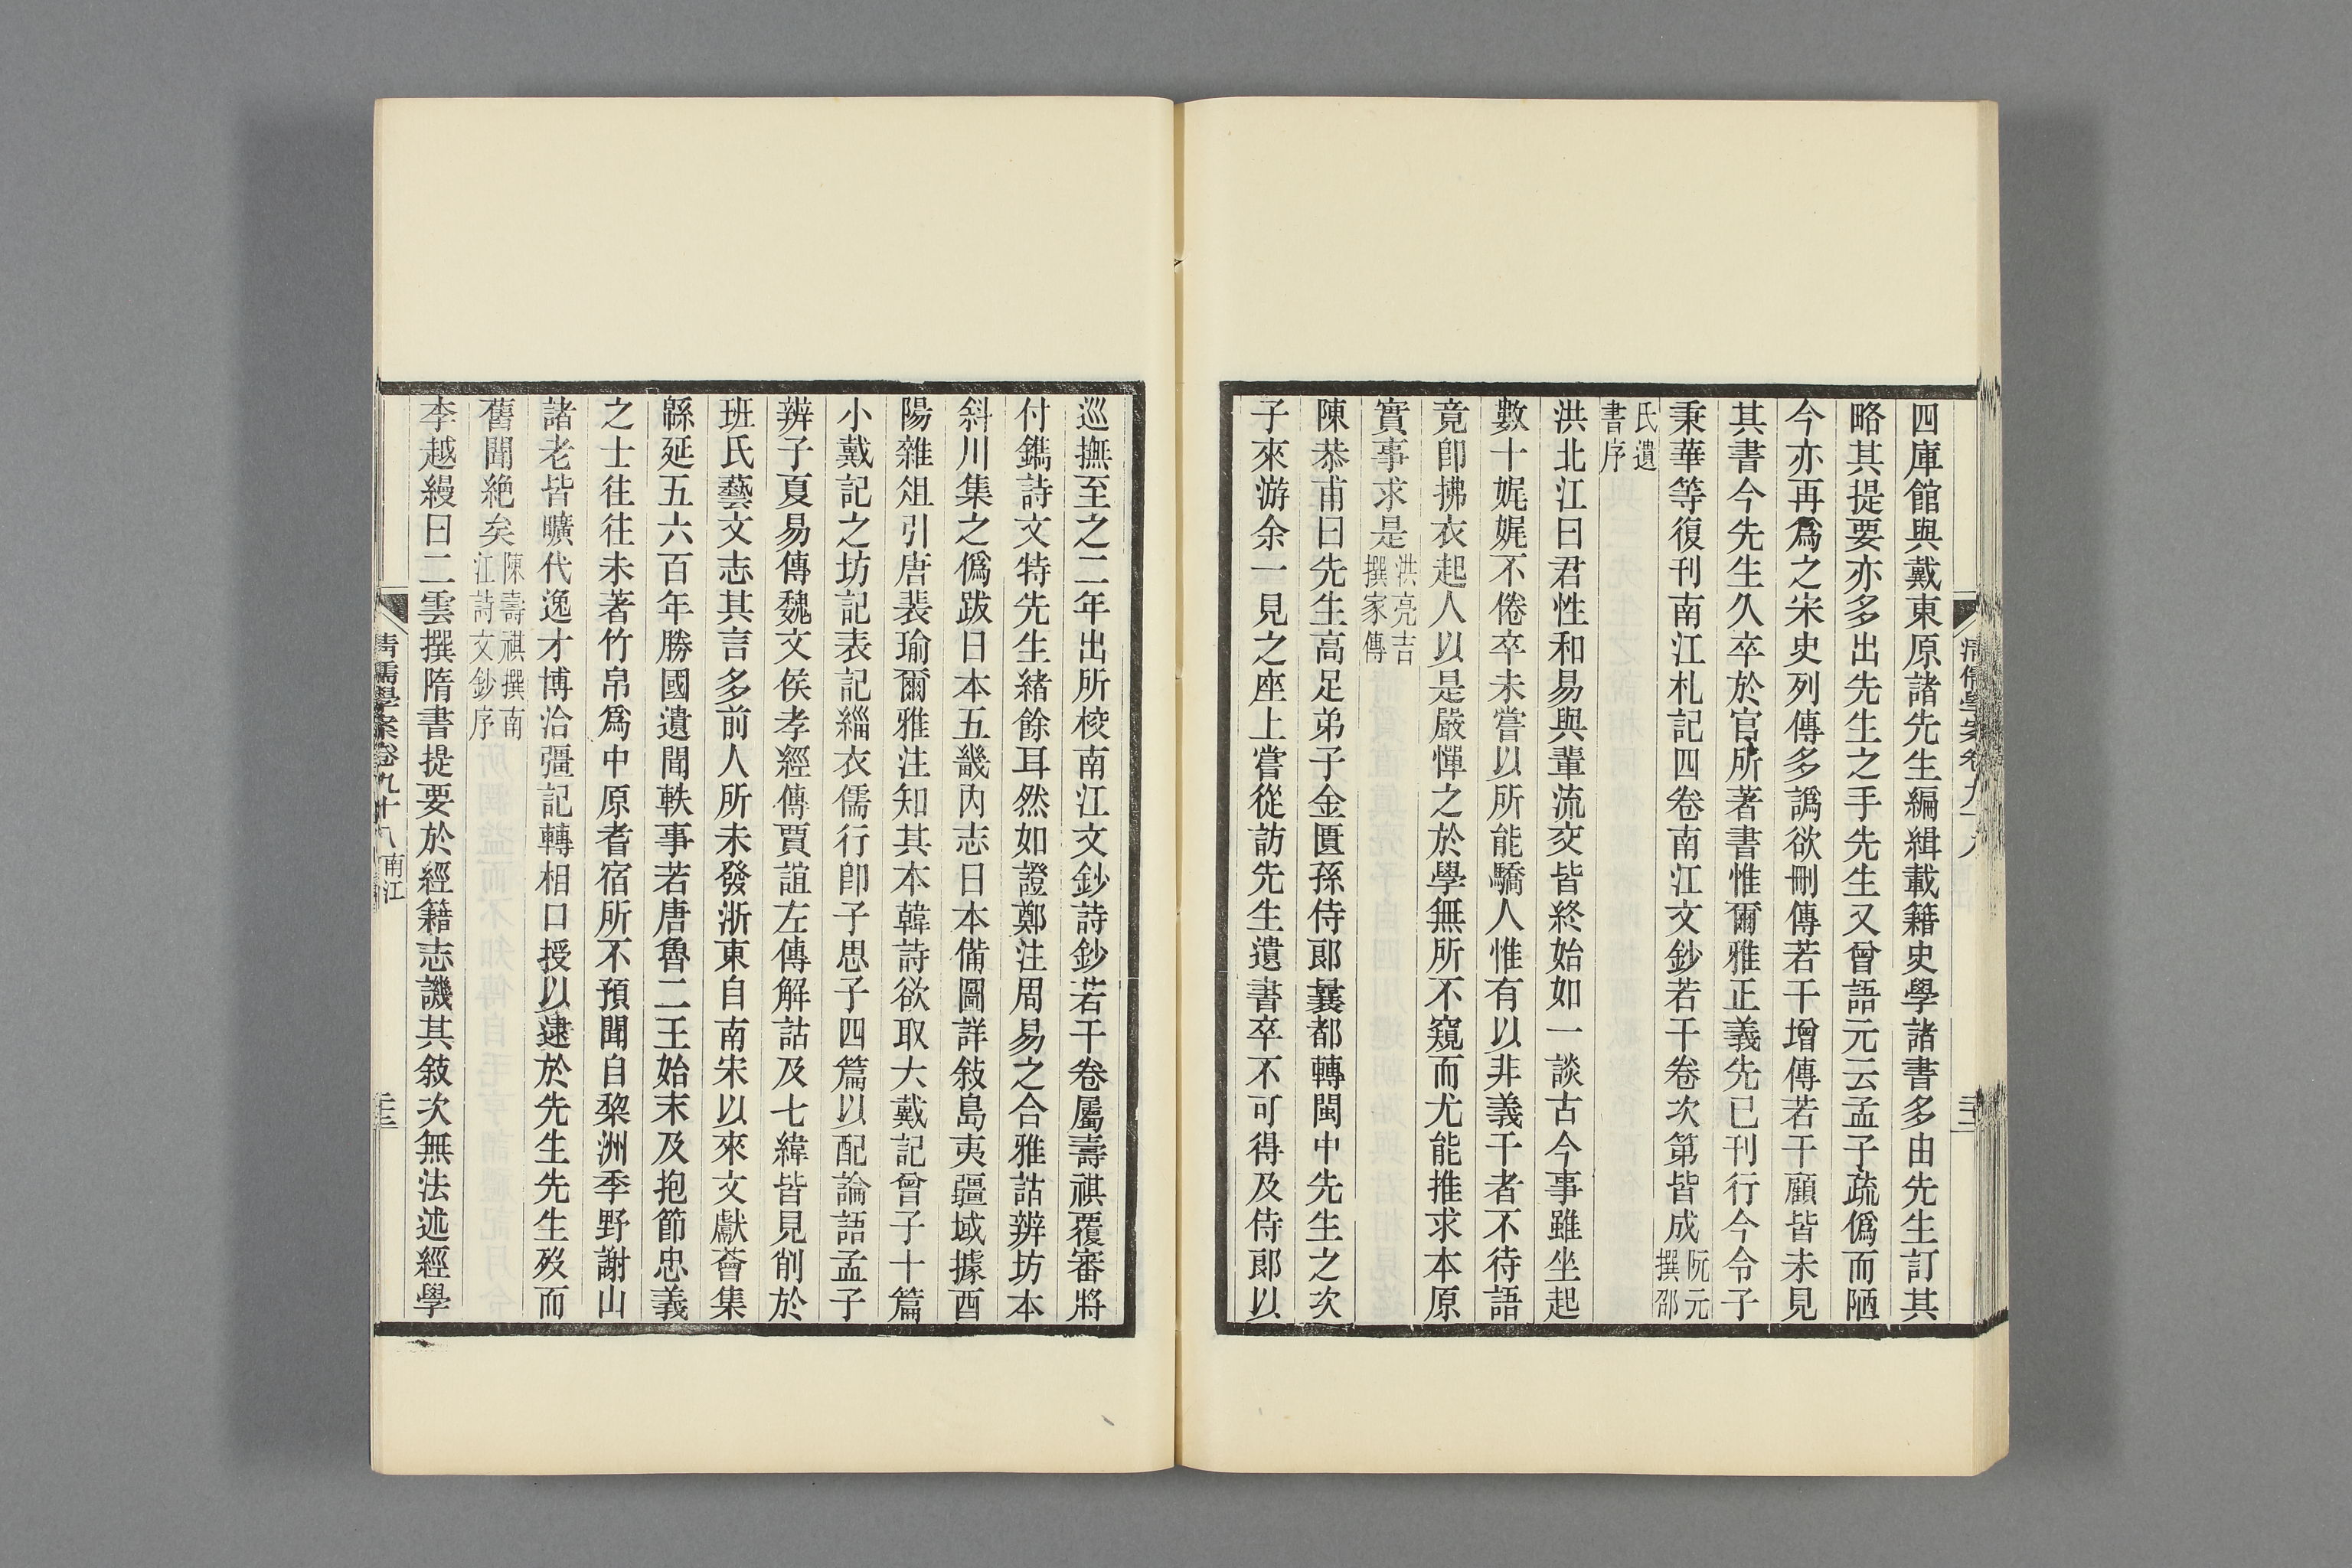 四庫館與戴東原諸先生編緝載籍史學諸書多由先生訂其
略其提要亦多出先生之手先生又曾語元云孟子疏僞而陋
今亦再爲之宋史列傳多譌欲刪傳若干增傳若干顧皆未見
其書今先生久卒於官所著書惟爾雅正義先已刊行今令子
秉華等復刊南江札記四卷南江文鈔若干卷次第皆成阮元撰邵
氏遺書序
洪北江曰君性和易與輩流交皆終始如一談古今事雖坐起
數十娓娓不倦卒未嘗以所能驕人惟有以非義干者不待語
竟卽拂衣起人以是嚴憚之於學無所不窺而尤能推求本原
實事求是洪亮吉撰家傳
陳恭甫曰先生高足弟子金匱孫侍郞曩都轉閩中先生之次
子來游余一見之座上嘗從訪先生遺書卒不可得及侍郞以
巡撫至之二年出所校南江文鈔詩鈔若干卷屬壽祺覆審將
付鐫詩文特先生緒餘耳然如證鄭注周易之合雅詁辨坊本
斜川集之僞跋日本五畿內志日本備圖詳敍島夷疆域據酉
陽雜俎引唐裴瑜爾雅注知其本韓詩欲取大戴記曾子十篇
小戴記之坊記表記緇衣儒行卽子思子四篇以配論語孟子
辨子夏易傳魏文侯孝經傳賈誼左傳解詁及七緯皆見削於
班氏藝文志其言多前人所未發浙東自南宋以來文獻薈集
緜延五六百年勝國遺聞軼事若唐魯二王始末及抱節忠義
之士往往未著竹帛爲中原耆宿所不預聞自棃洲季野謝山
諸老皆曠代逸才博洽彊記轉相口授以逮於先生先生歿而
舊聞絕矣陳壽祺撰南江詩文鈔序
李越縵曰二雲撰隋書提要於經籍志譏其敍次無法述經學
清儒學案卷九十八 南江